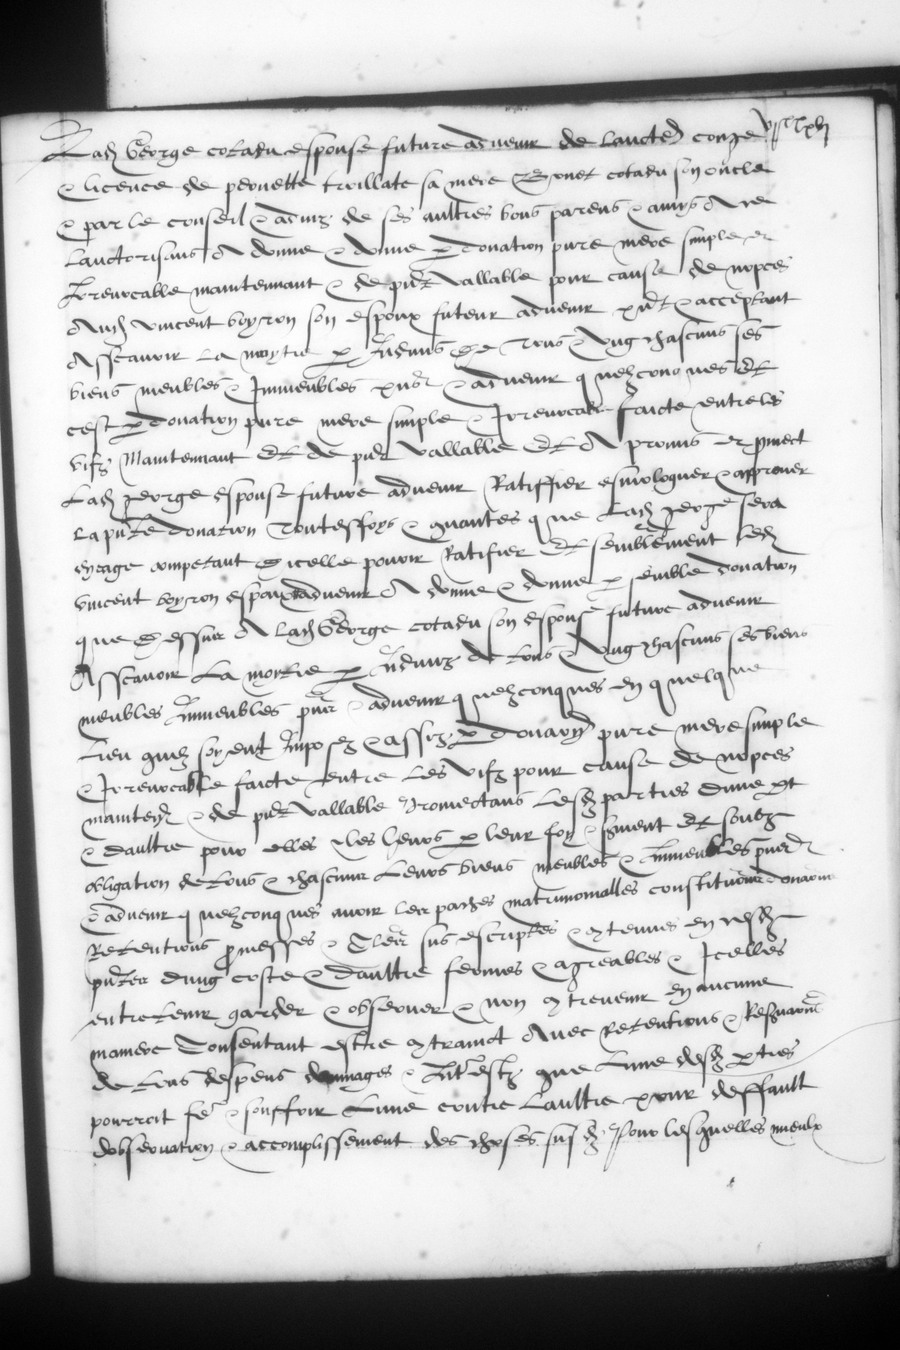 Lad George cotadu espouse future advenir de laucte conge
& licence de peronette troillate sa mere Gonet cotadu son oncle
& par le conseil & advis de ses aultres bons parens & amys A ce
lauctorisans A donne & donne p donation pure mere simple et
Irrevocable maintennant & de pnt vallable pour cause de nopces
Aud vincent boyron son espoux futeur advenir pnt & acceptant
Asscavoir la moytie p Indivis de tous & ung chascuns ses
biens meubles & Immeubles pns & advenir quelzconques Et
cest p donation pure mere simple & Irrevocable faicte entre les
vifz Maintennant Et de pnt vallable Et A promis et promect
Lad george espouse future advenir Ratiffier esmologuer & approuver
la pnte donation Toutesfoys & quantes que Lad george sera
en eage competant de icelle pouvoir Ratifier Et semblement led
vincent boyron espoux advenir A donne & donne p semble donation
que dessus A lad George cotadu son espouse future advenir
Asscavoir La moytie p Indivis de tous & ung chascuns ses biens
meubles Immeubles pns & advenir quelzconques en quelque
Lieu quilz soyent Imposez & assis p donation pure mere simple
& Irrevocable faicte entre les vifz pour cause de nopces
mainten & de pnt vallable Promectans lesd parties dune pt
& daultre pour elles & les leurs p leur foy & sment Et soubz
obligation de tous & chascuns leurs biens meubles & Immeubles pns
& advenir quelzconques avoir les paches matrimonialles constitution donation
Retentions promesses & Clers sus escriptes & contenus en
pntes dung coste & daultre fermes & agreables & Icelles
entretenir garder & observer & non contrevenir en aucune
maniere Consentant estre contrainct Avec Retentions &
de tous despens dommages & Interestz que lune desd pties
pourroit fe & souffrir Lune contre Laultre pour deffault
dobservation & accomplissement des choses susd Pour lesquelles mieulx